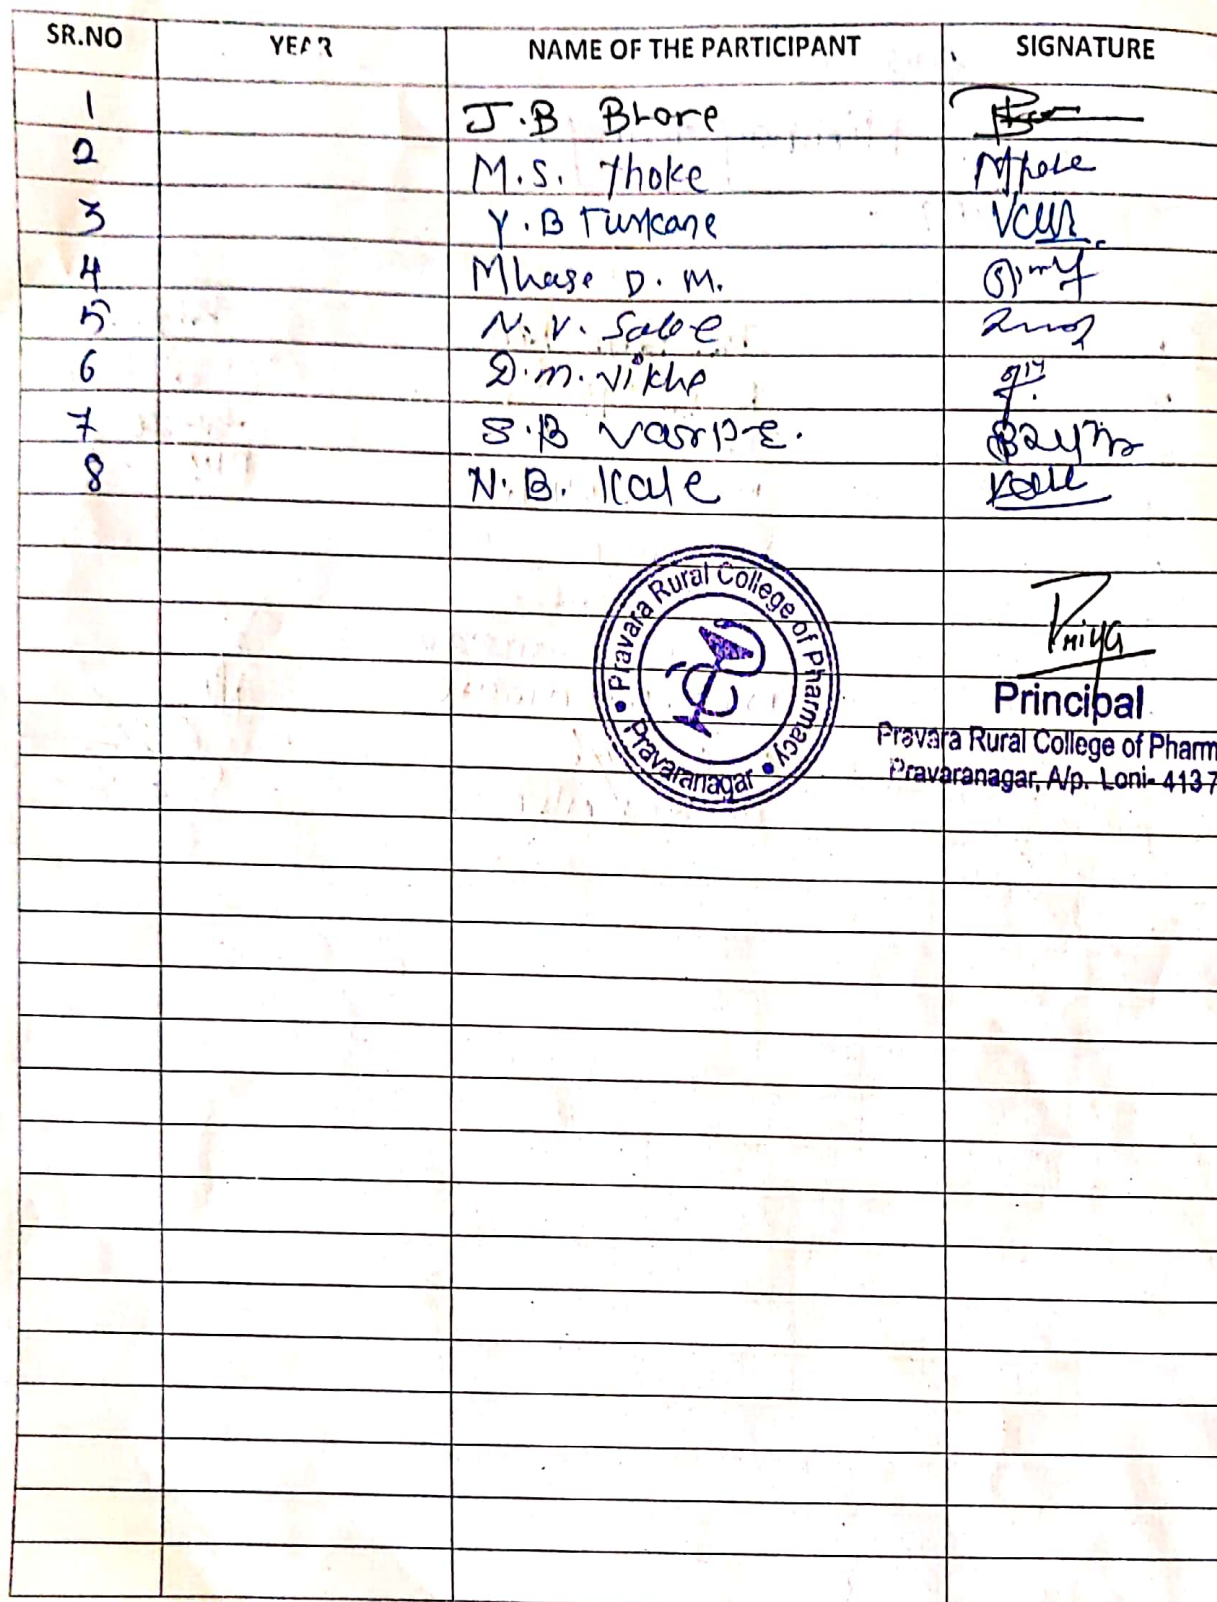 SR.NO YEAR NAME OF THE PARTICIPANT SIGNATURE
1 J.B. Bhore
2 M.S. Thoke
3 Y.B Turkane
4 Mhase D.M.
5 N.V. Sable
6 D.m. Vikhe
7 S.B Varpe.
8 N.B. Kale Kale
Pravara Rural College of Pharmacy
Pravaranagar
Priya
Principal
Pravara Rural College of Pharm
Pravaranagar, A/p. Loni- 4137